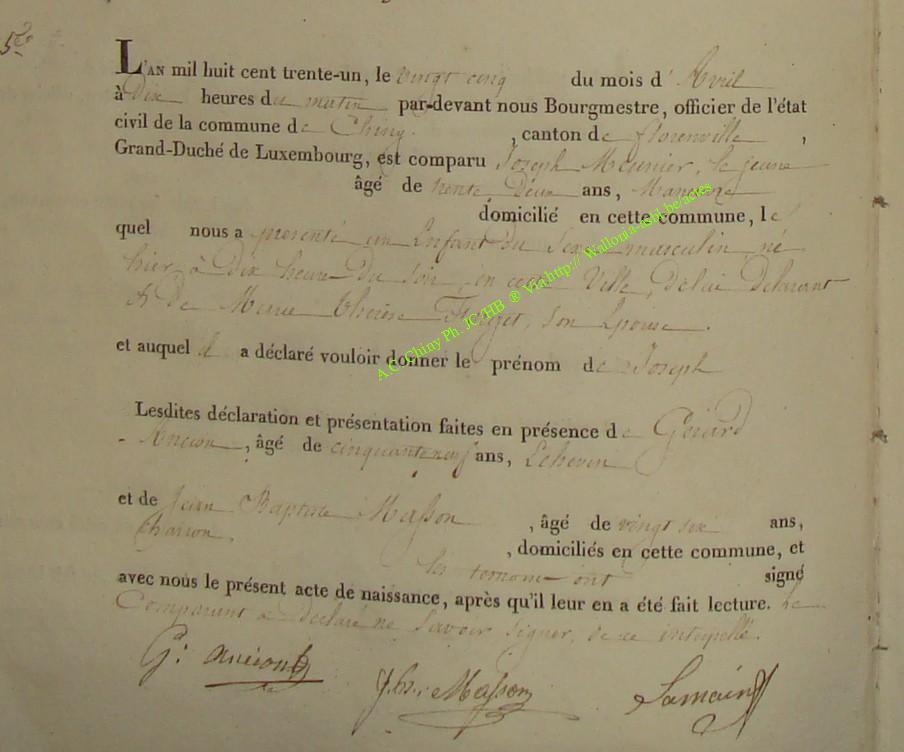 5e
L'AN mil huit cent trente-un, le vingt cinq du mois d'Avril
à Dix heures du matin par-devant nous Bourgmestre, officier de l'état
civil de la commune de Chiny. , canton de florenville ,
Grand-Duché de Luxembourg, est comparu Joseph Meunier, le jeune
âgé de trente Deux ans, Manœuvre
domicilié en cette commune, le
quel nous a présenté un Enfant du Sexe masculin, né
hier, à dix heure du soir, en cette Ville, de lui Déclarant
& de Marie thérèse Forget, son Epouse.
et auquel il a déclaré vouloir donner le prénom de Joseph
Lesdites déclaration et présentation faites en présence de Gérard
Ancion, âgé de cinquante neuf ans, Echevin
et de Jean Baptiste Masson , âgé de vingt six ans,
charron. , domiciliés en cette commune, et
les temoins ont signé
avec nous le présent acte de naissance, après qu'il leur en a été fait lecture. Le
Comparant a déclaré ne Savoir Signer, de ce interpellé.
G. ancion J. b. Masson Lamain
A.C. Chiny Ph. JC/HB ® Via http// Wallonia-asbl.be/actes